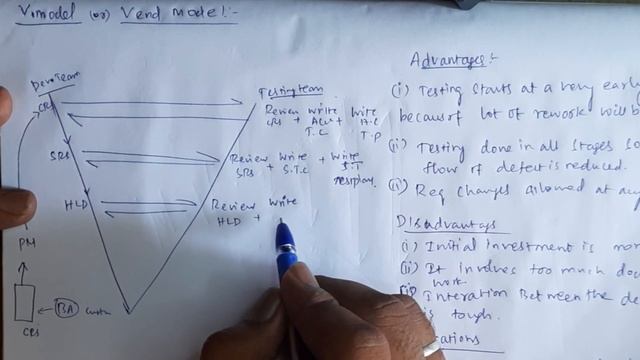 V model (or) Vend model:-
Dev.Team
CRS
SRS
HLD
PM
BA
CRS
Testing team
Review Write Write
CRS + +
T.C T.P
Review Write + Write
SRS + S.T.C S.T
Testplan
Review Write
HLD +
Advantages:-
(i) Testing starts at a very early
because of lot of rework will b
(ii) Testing done in all stages so
flow of defect is reduced.
Req changes allowed at any
Disadvantags
(i) Initial investment is mor
(ii) It involves too much doc
work
Interation Between the de
is tough.